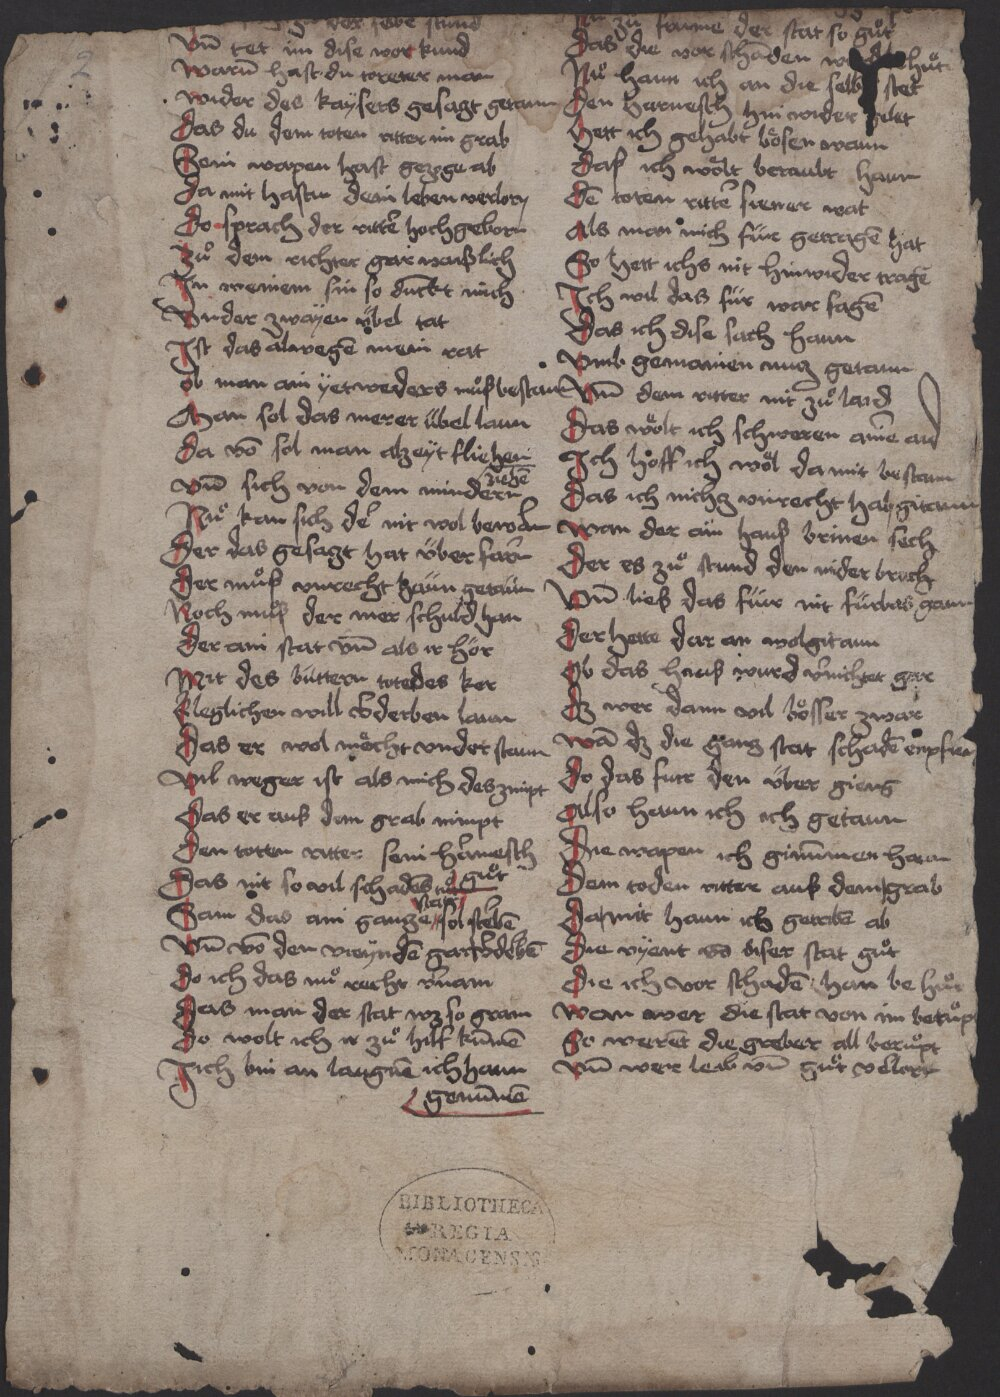 Vn̄ tet im dise wort kund
Warū hast du toreter man
wider des kaysers gesagt getann
Das du dem toten ritter im grab
Sein wapen hast gezoge ab
Da mit hastu dein leben verlorn
Do sprach der ritter hochgeborn
Zuͦ dem richter gar waißlich
In meinem sin so dunckt mich
Vnder zwayen übel tat
Ist das alwegē mein rat
ob man ain yetweders muͦß bestan
Man sol das merer übel laun
Da vō sol man alzeyt fliehen
vn̄ sich von dem mindern ziehē
Nuͦ kan sich der nit wol bewarn
Der das gesagt hat über farn
Der muͦß vnrecht haun getaun
Noch muͦß der mer schuld han
Der ain stat vn̄ als ir hör
Mit des büttern todes ker
Cleglichen will vderben laun
Das er wol möcht vnder staun
vil weger ist als mich des zimpt
Das er auß dem grab nimpt
Den totten ritter sein harnesch
Das nit so vil schadēs tuͦt guͦt
Sam das ain gantze stat sol sterbē
Vn̄ vō den vieyndē gar vderbē
Do ich das nuͦ recht vnam
Das man der stat wz so gram
Do wolt ich ir zuͦ hilf kumē
Ich bin an laugnē ich haun
genumē
zu frume der stat so guͦt
Das die vor schaden behuͦt
Nuͦ haun ich an die selb stet
Den harnesch hin wider gelet
Hett ich gehabt bösen waun
Daß ich wölt beraubt haun
Dē toten ritter seiner wat
Als man mich für getragē hat
So hett ichs nit hin wider tragē
Ich wil das für war sagē
Das ich dise sach haun
vmb gemainen nucz getaun
Vn̄ dem ritter nit zuͦ laid
Das wölt ich schweren ainē aid
Ich hoff ich wöl da mit bestaun
Das ich nichcz vnrecht hab gitaun
wan der ain hauß brinen sech
Der es zuͦ stund den nider brech
Vn̄ ließ das für nit fürbas gaun
Der hette dar an wol gitaun
Ob das hauß wurd vnichtet gar
Dz wer dann vil bösser zwar
wā dz die gancz stat schadē enpfieng
So das fuir den über gieng
Also haun ich ich getaun
Die wapen ich ginummen haun
Dem toden ritter auß dem grab
Da mit haun ich getribē ab
Die vyent vō diser stat guͦt
Die ich vor schadē han behuͦt
Wan wer die stat von im betruͦpt
So werent die greber all beruͦpt
Vn̄ wer leib vn̄ guͦt vlorn
BIBLIOTHECA
REGIA
MONACENSIS